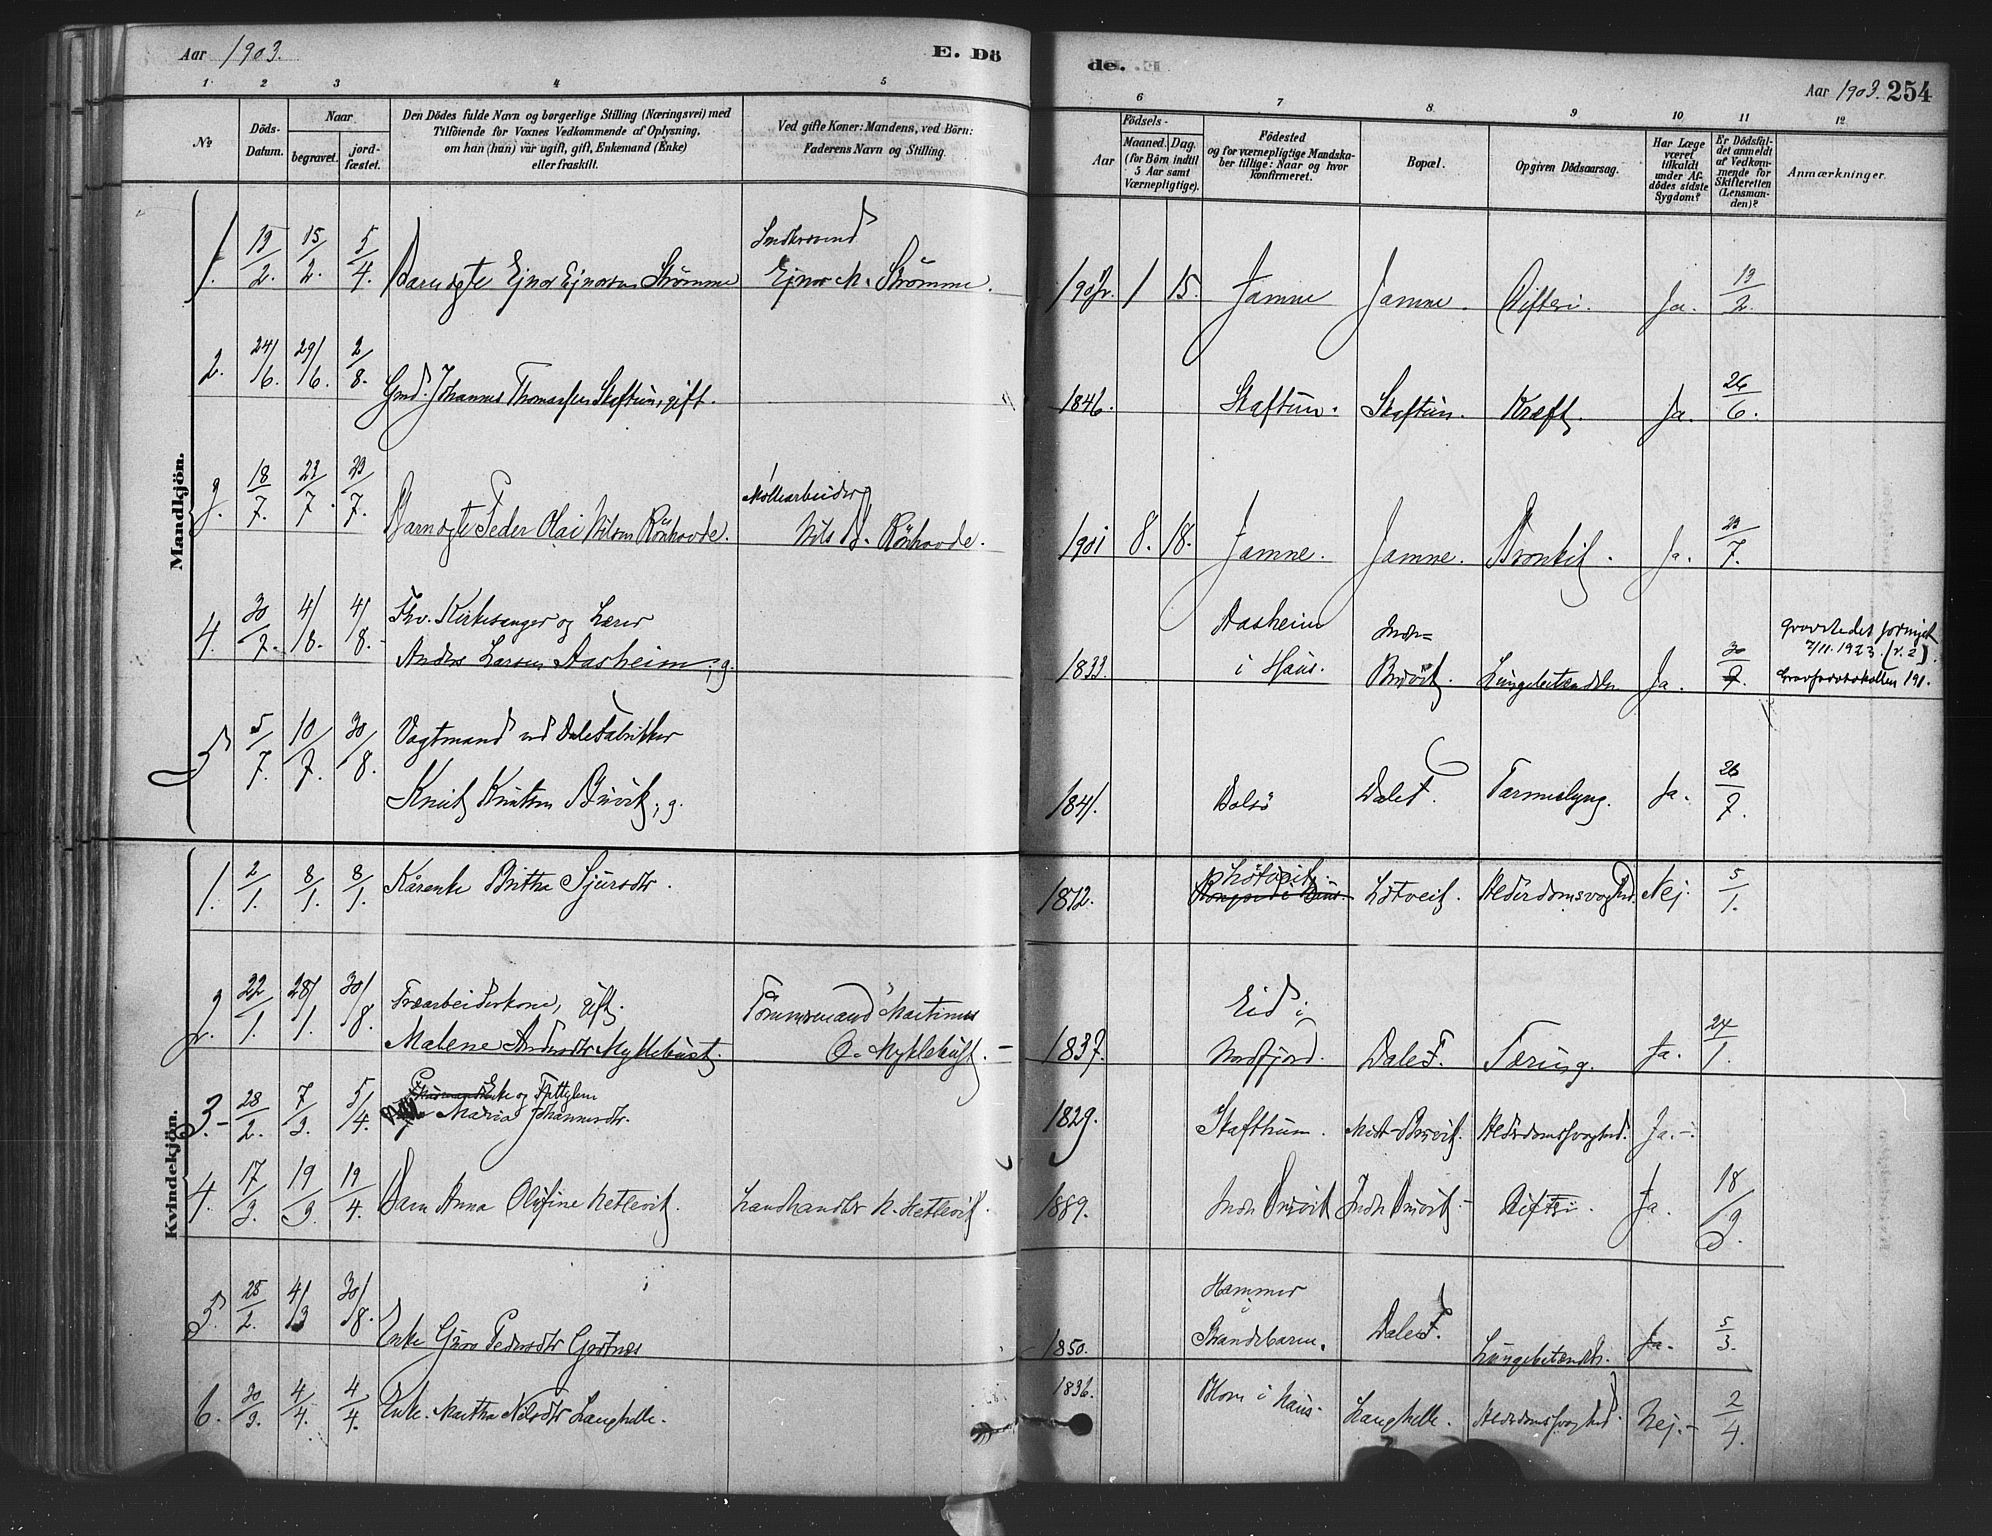 Aar 1903.
E. Dö
de.
Aar 1903. 254
1. 2 3 4 5
6 7 8. 9 10 11 12
No
Döds-
Datum.
Naar
begravet.
jord-
fæstet.
Den Dödes fulde Navn og borgerlige Stilling (Næringsvei) med
Tilföiende for Voxnes Vedkommende af Oplysning,
om han (hun) var ugift, gift, Enkemand (Enke)
eller fraskilt.
Ved gifte Koner: Mandens, ved Börn:
Faderens Navn og Stilling.
Födsels-
Aar
Maaned. Dag.
(for Börn indtil
5 Aar samt
Værnepligtige).
Födested
og for værnepligtige Mandska-
ber tillige: Naar og hvor
konfirmeret.
Bopæl.
Opgiven Dödsaarsag.
Har Læge
været
tilkaldt
under Af-
dödes sidste
Sygdom?
Er Dödsfal-
det anmeldt
af Vedkom-
mende for
Skifteretten
(Lensman-
den)?
Anmærkninger.
Mandkjön.
1. 13/2. 15/2. 5/4. Barn ægte Ejnor Ejnorsen Strømme
Ejnor M. Strømme.
1 15. Jamne Jamne. Difteri. Ja. 13/2.
2. 24/6. 29/6. 2/8. Gmd. Johannes Thomassen Skaftun, gift.
1846. Skaftun. Skaftun. Kræft. Ja. 26/6.
3. 18/7. 23/7. 23/7. Barn ægte Peder Olai Nilsen Rönhovde.
Möllearbeider
Nils Rönhovde.
1901 8. 18. Jamne. Jamne. Bronkit. Ja. 23/7.
4. 30/7. 4/8. 4/8. Fhv. Kirkesanger og Lærer
Anders Larsen Aasheim, g.
1833. Aasheim
i Haus.
Indr=
Bruvik. Lungebetændelse Ja. 30/7.
Gravstedet fornyet
7/11.1923. (r. 2).
Gravprotokollen 191.
5 5/7. 10/7. 30/8. Vagtmand ved Dale Fabrikker
Knut Knutsen Bruvik, g.
1841. Bolsö Dale F. Tarmslyng. Ja. 26/7.
Kvindekjön.
1. 2/1. 8/1. 8/1. Kårenke Britha Sjursdtr.
1812. Lötveit. Lötveit. Alderdomsvaghed. Nej. 5/1.
2. 22/1. 28/1. 30/8. Træarbeiderkone, gift.
Malene Andersdtr Myklebust.
Tömmermand Martinus
O. Myklebust.
1837. Eid i
Nordfjord. Dale F. Tæring. Ja. 24/1.
3. 28/2. 7/3. 5/4. Enke og Fattiglem
Maria Johannesdtr.
1829. Skafthun. Midt-Bruvik. Alderdomssvaghed. Ja.
4. 17/3. 19/3. 19/4. Barn Anna Olufine Hetlevik.
Landhandler N. Hetlevik.
1889. Indr Bruvik Indr Bruvik. Difteri. Ja. 18/3.
5. 25/2. 4/3 30/8. Enke Guro Pedersdtr Grotnæs
1850. Hammer
Strandebarm. Dale F. Lungebetændels. Ja. 5/3.
6. 30/3. 4/4. 4/4. Enke. Martha Nilsdtr Langhelle.
1836. Horn i Haus. Langhelle. Alderdomssvaghed. Nej. 2/4.